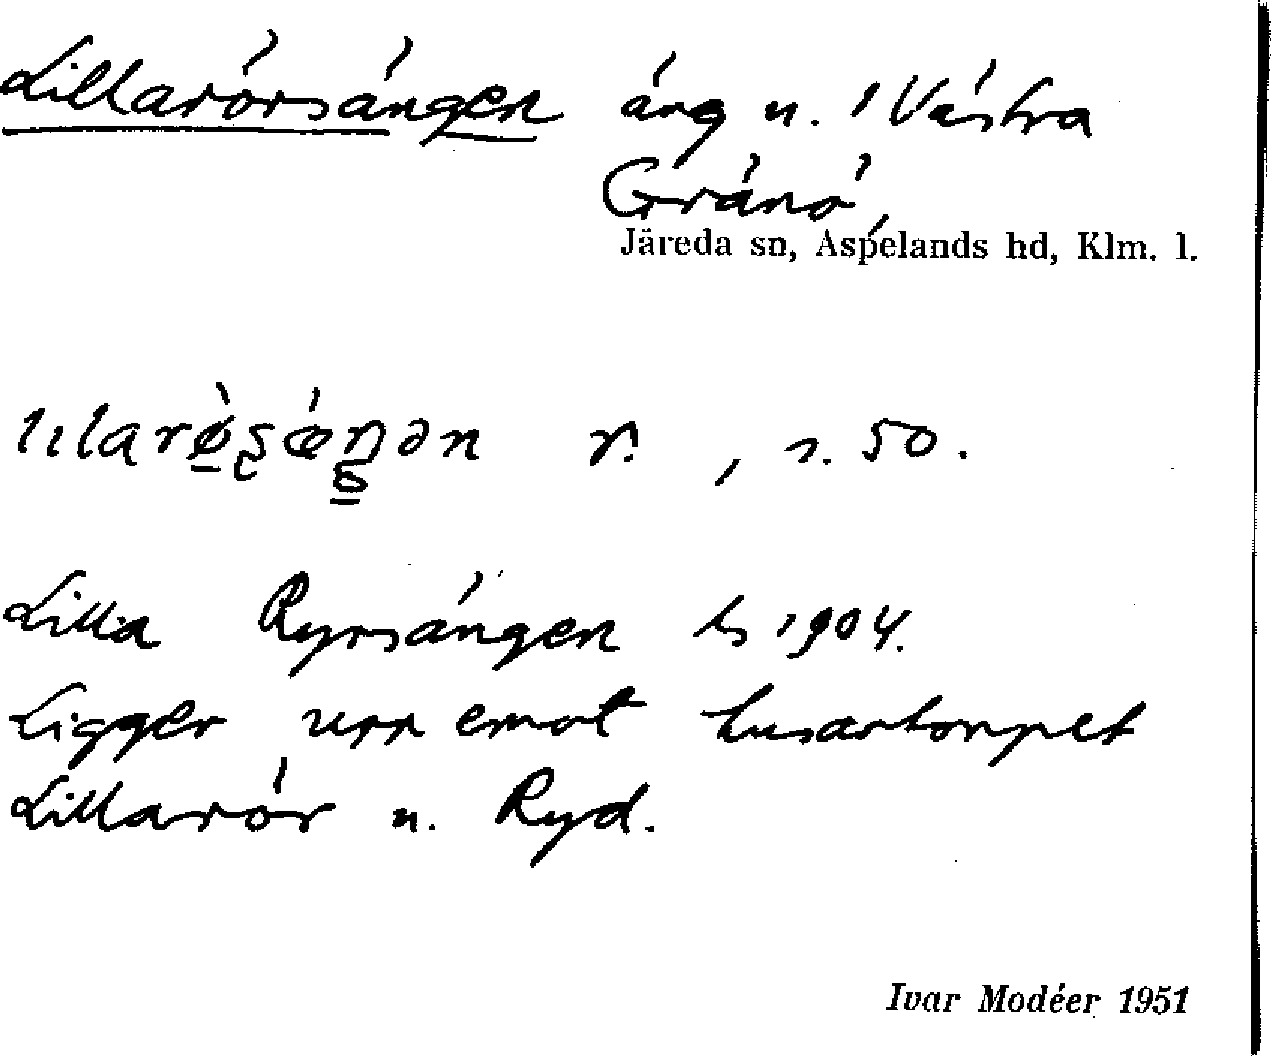 Lillarörsängen äng u. Västra
Gränö,
Järeda sn, Aspelands hd, Klm. l.
r. , s. 50.
Lilla Ryrsängen ls 1904.
Ligger upp emot husartorpet
Lillarör u. Ryd.
Ivar Modéer 1951